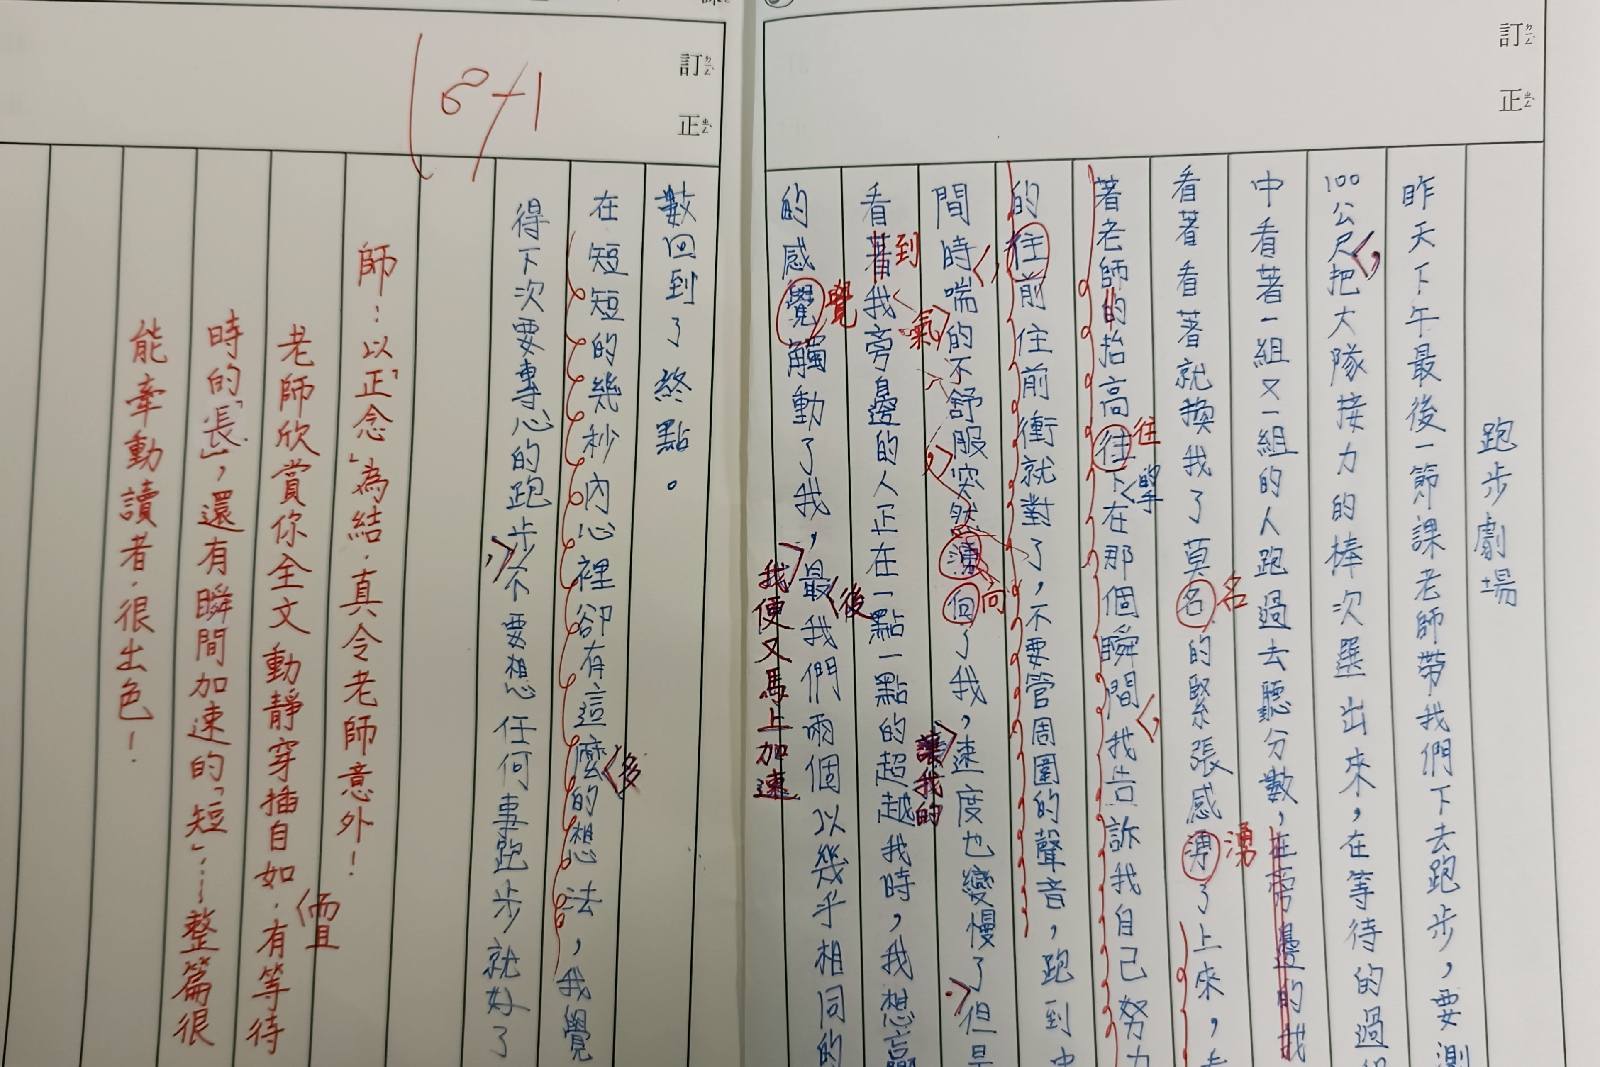 訂ㄉㄧㄥˋ
正ㄓㄥˋ
跑步劇場
昨天下午最後一節課老師帶我們下去跑步，要測
100公尺，把大隊接力的棒次選出來，在等待的過
中看著一組又一組的人跑過去聽分數，在旁邊的我
看著看著就換我了莫名的緊張感湧了上來，
名
湧
著老師的抬高往下在那個瞬間，我告訴我自己努力
往
掌
的往前往前衝就對了，不要管周圍的聲音，跑到中
間時，喘的不舒服突然湧向了我，速度也變慢了但是
氣
向
讓我的
看著我旁邊的人正在一點一點的超越我時，我想贏
到
的感覺觸動了我，最我們兩個以幾乎相同的
覺
後
我便又馬上加速
訂ㄉㄧㄥˋ
正ㄓㄥˋ
數回到了終點。
在短短的幾秒內心裡卻有這麼的想法，我覺
多
得下次要專心的跑步，不要想任何事跑步就好了
師：以「正念」為結，真令老師意外！
老師欣賞你全文動靜穿插自如，有等待
時的「長」，還有瞬間加速的「短」……整篇很
能牽動讀者，很出色！